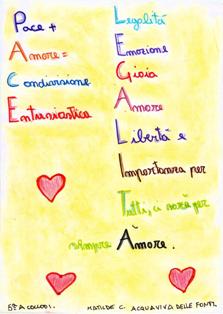 Pace +
Amore =
Condivisione
Entusiastica
Legalità
Emozione
Gioia
Amore
Libertà e
Importanza per
Tutti, ci sarà per
sempre Amore.
5ª A COLLODI.
MATILDE C. ACQUAVIVA DELLE FONTI.